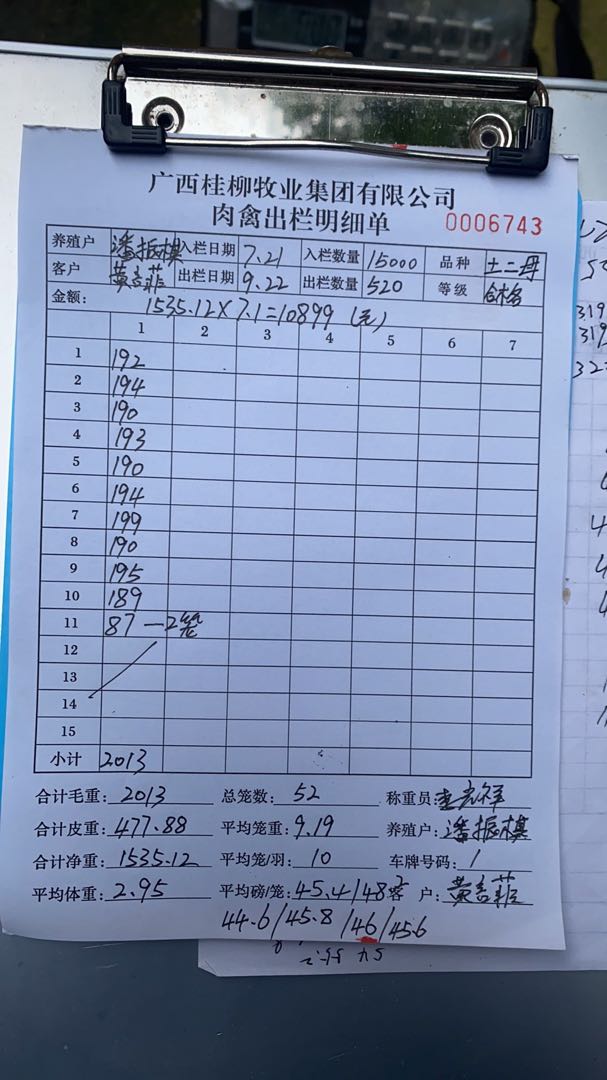 广西桂柳牧业集团有限公司
肉禽出栏明细单 0006743
养殖户 潘振模 入栏日期 7.21 入栏数量 15000 品种 土二母
客户 黄吉菲 出栏日期 9.22 出栏数量 520 等级 合格
金额: 1535.12×7.1=10899 (元)
1 2 3 4 5 6 7
1 192
2 194
3 190
4 193
5 190
6 194
7 199
8 190
9 195
10 189
11 87 —2笼
12
13
14
15
小计 2013
合计毛重: 2013 总笼数: 52 称重员:
合计皮重: 477.88 平均笼重: 9.19 养殖户: 潘振模
合计净重: 1535.12 平均笼/羽: 10 车牌号码: /
平均体重: 2.95 平均磅/笼: 45.4/48.2 客 户: 黄吉菲
44.6/45.8/46/45.6